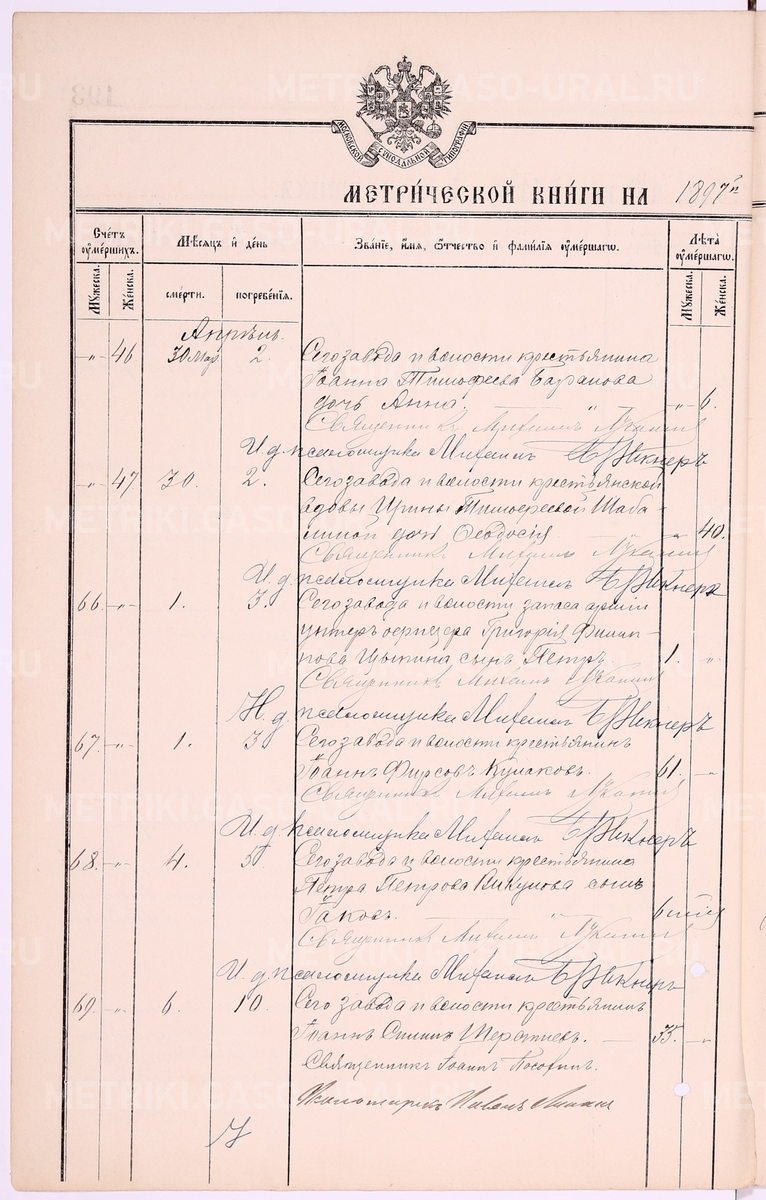 МОСКОВСКОЙ СѴНОДАЛЬНОЙ ТИПОГРАФІИ
МЕТРИ́ЧЕСКОЙ КНИ́ГИ НА 1897 г.
Счетъ оумершихъ.
Мѣсяцъ и день
Званіе, имя, отчество и фамилія оумершагѡ.
Лѣта оумершагѡ.
Мужеска.
Женска.
смерти.
погребенія.
Мужеска.
Женска.
Апрѣль.
„ 46 30 Мар. 2. Сего завода и волости крестьянина
Іоанна Тимофеева
дочь Анна. „ 6.
Священникъ Михаилъ
И. д. псаломщика Михаилъ
„ 47 30. 2. Сего завода и волости крестьянской
вдовы Ирины Тимофеевой Шаба-
линой дочь Ѳеодосія „ 40.
Священникъ Михаилъ
И. д. псаломщика Михаилъ
66. „ 1. 3. Сего завода и волости запаса арміи
унтеръ офицера Григорія Филип-
пова Цыпина сынъ Петръ. 1. „
Священникъ Михаилъ
И. д. псаломщика Михаилъ
67. „ 1. 3. Сего завода и волости крестьянинъ
Іоаннъ Фирсовъ Кулаковъ. 61. „
Священникъ Михаилъ
И. д. псаломщика Михаилъ
68. „ 4. 5. Сего завода и волости крестьянина
Петра Петрова Викулова сынъ
Іаковъ. 6
Священникъ Михаилъ
И. д. псаломщика Михаилъ
69. „ 6. 10. Сего завода и волости крестьянинъ
Іоаннъ 35. „
Священникъ Іоаннъ
Псаломщикъ Иванъ
METRIKI.GASO-URAL.RU